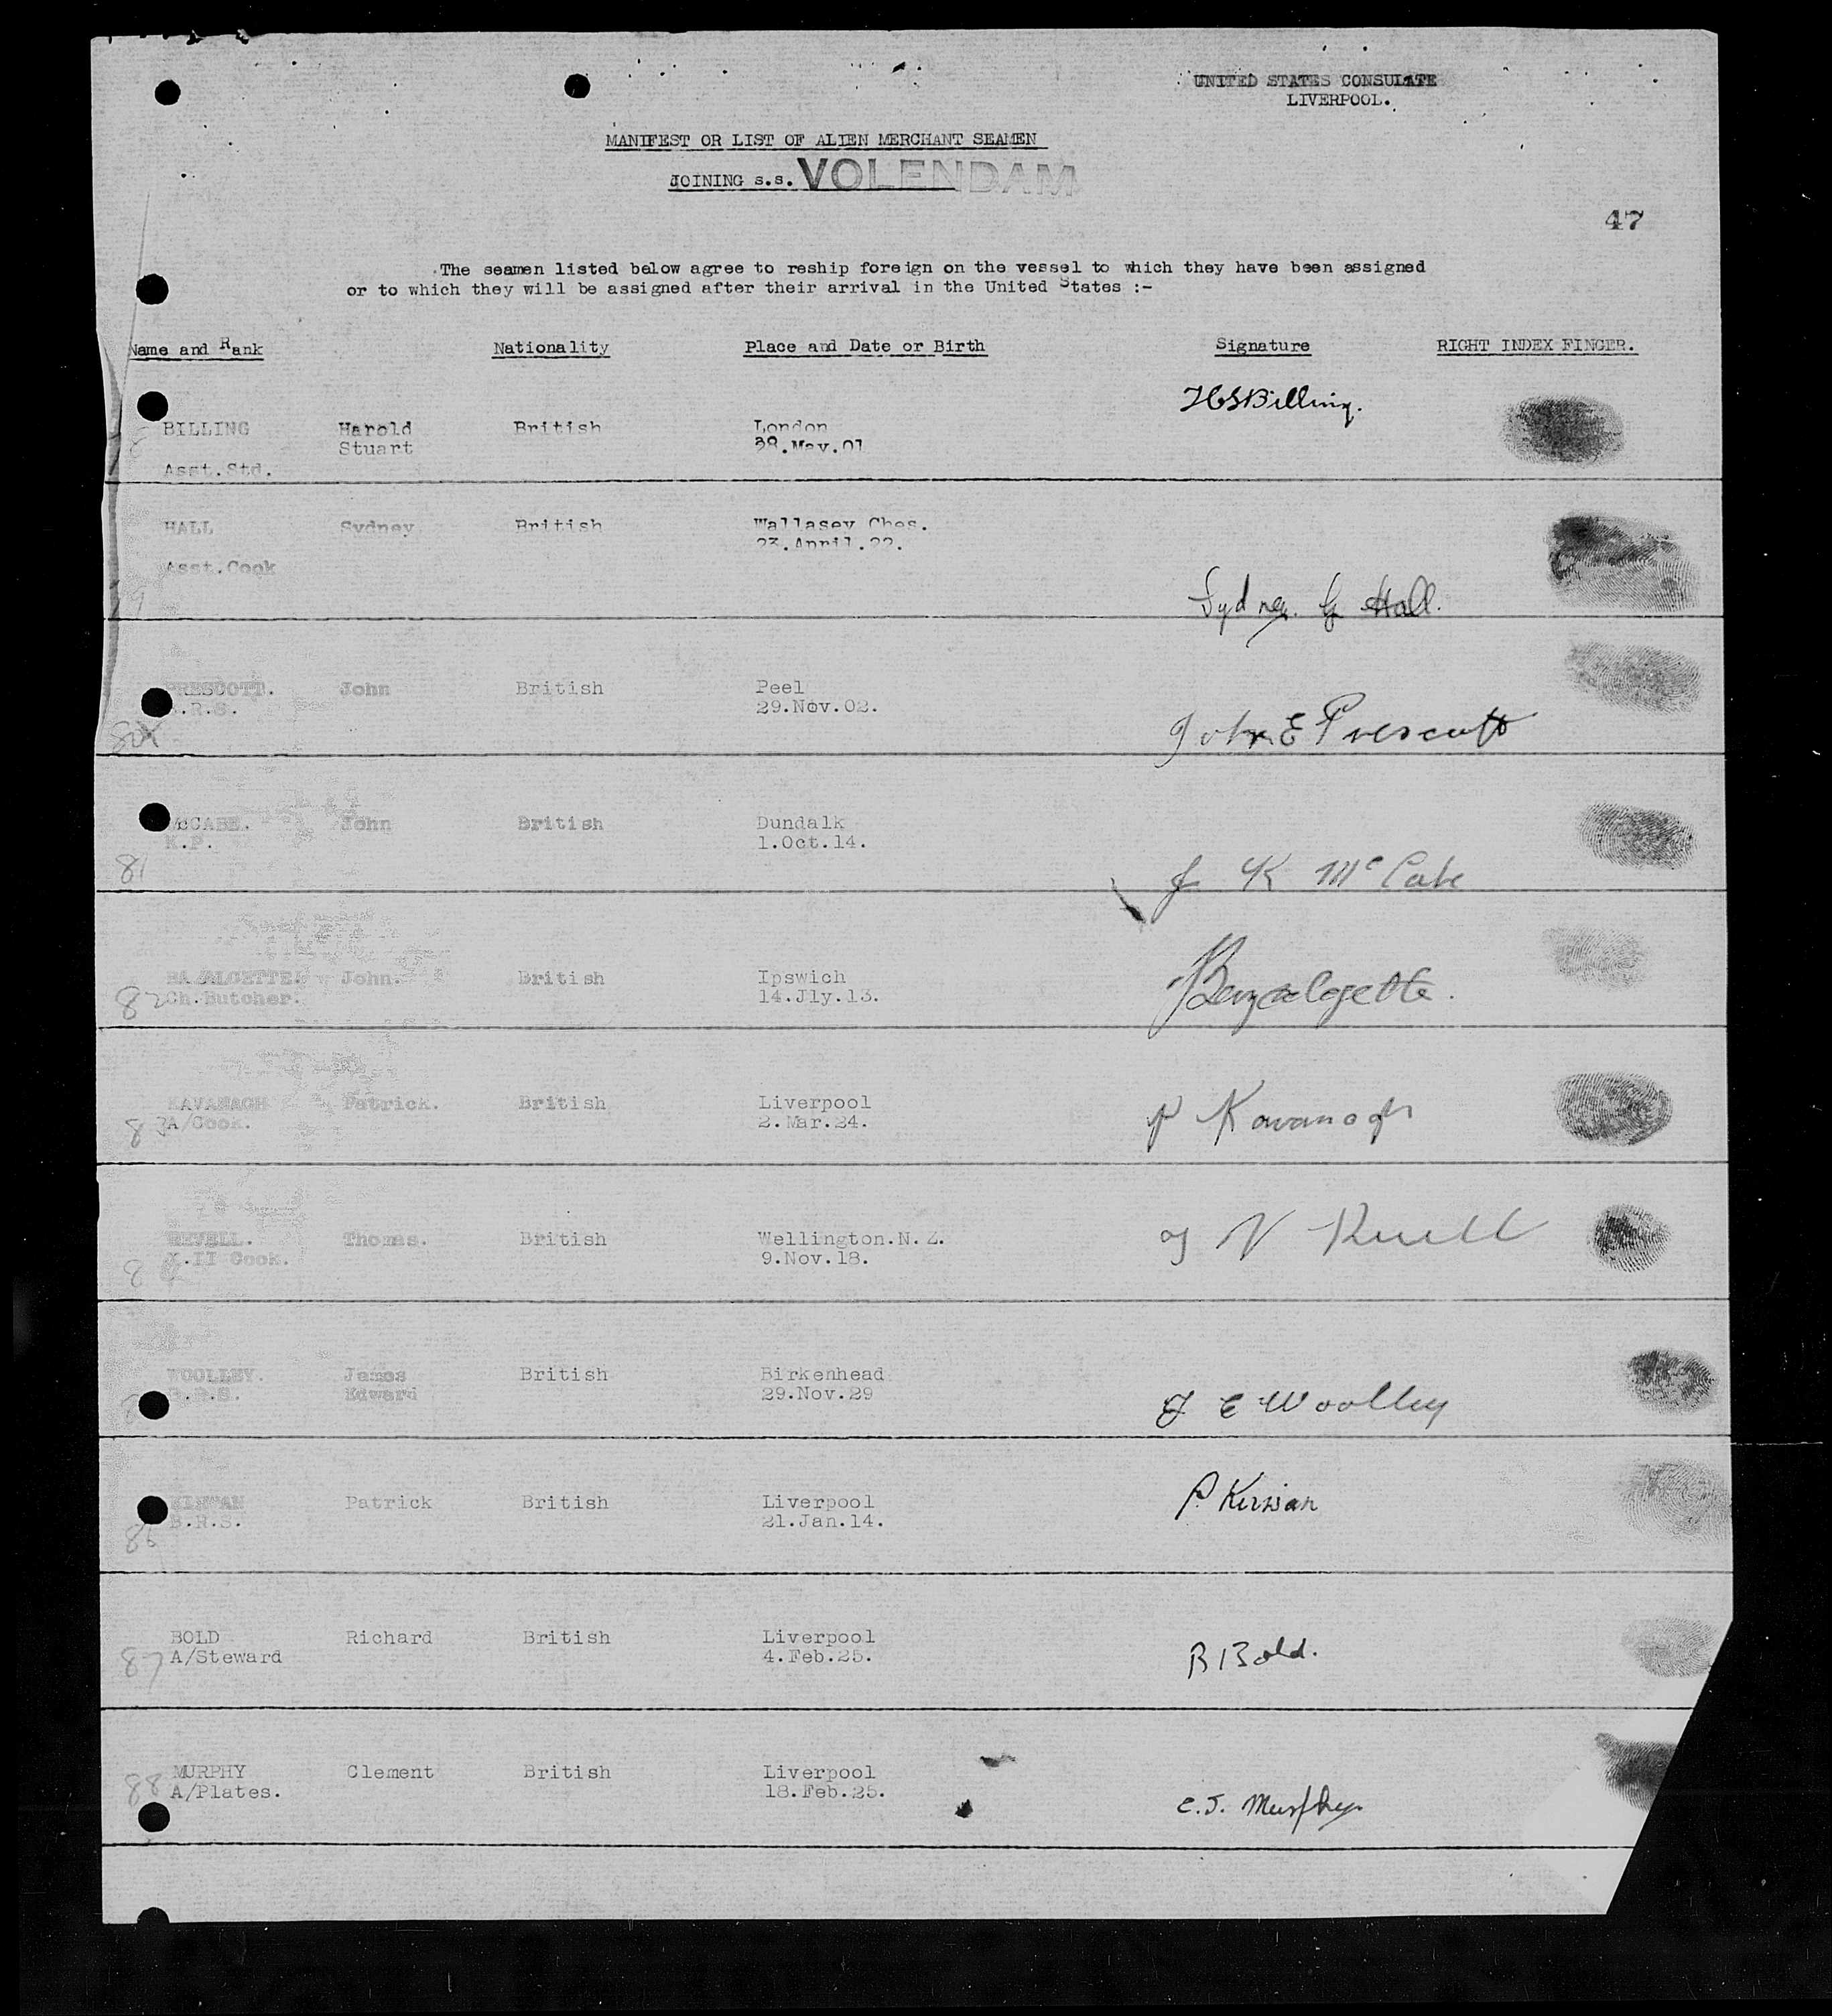 UNITED STATES CONSULATE
LIVERPOOL.
MANIFEST OR LIST OF ALIEN MERCHANT SEAMEN
JOINING s.s. VOLENDAM
47
The seamen listed below agree to reship foreign on the vessel to which they have been assigned
or to which they will be assigned after their arrival in the United States :-
Name and Rank Nationality Place and Date or Birth Signature RIGHT INDEX FINGER.
HSBilling.
BILLING Harold British London
Stuart .May.01
Asst.Std.
HALL Sydney British Wallasey Ches.
23.April.22.
Asst.Cook
Sydney. G Hall.
PRESCOTT. John British Peel
.R.S. 29.Nov.02.
80 John E Prescott
McCABE. John British Dundalk
K.P. 1.Oct.14.
81 J K McCabe
John. British Ipswich
82 Ch.Butcher. 14.Jly.13.
KAVANAGH Patrick. British Liverpool
83 A/Cook. 2.Mar.24. P Kavanagh
Thomas. British Wellington.N.Z.
.II Cook. 9.Nov.18.
8
WOOLLEY. James British Birkenhead
.R.S. Edward 29.Nov.29
J E Woolley
Patrick British Liverpool P.
B.R.S. 21.Jan.14.
86
BOLD Richard British Liverpool
87 A/Steward 4.Feb.25. R Bold.
MURPHY Clement British Liverpool
88 A/Plates. 18.Feb.25.
C.J. Murphy.